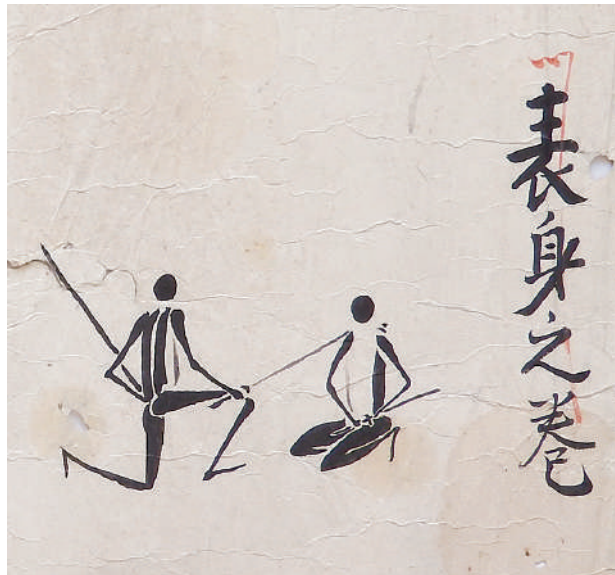 表身之巻